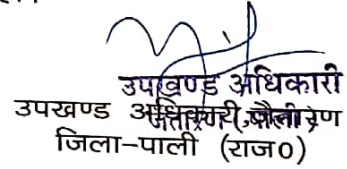 उपखण्ड अधिकारी
उपखण्ड अधिकारी,
जिला-पाली (राज0)